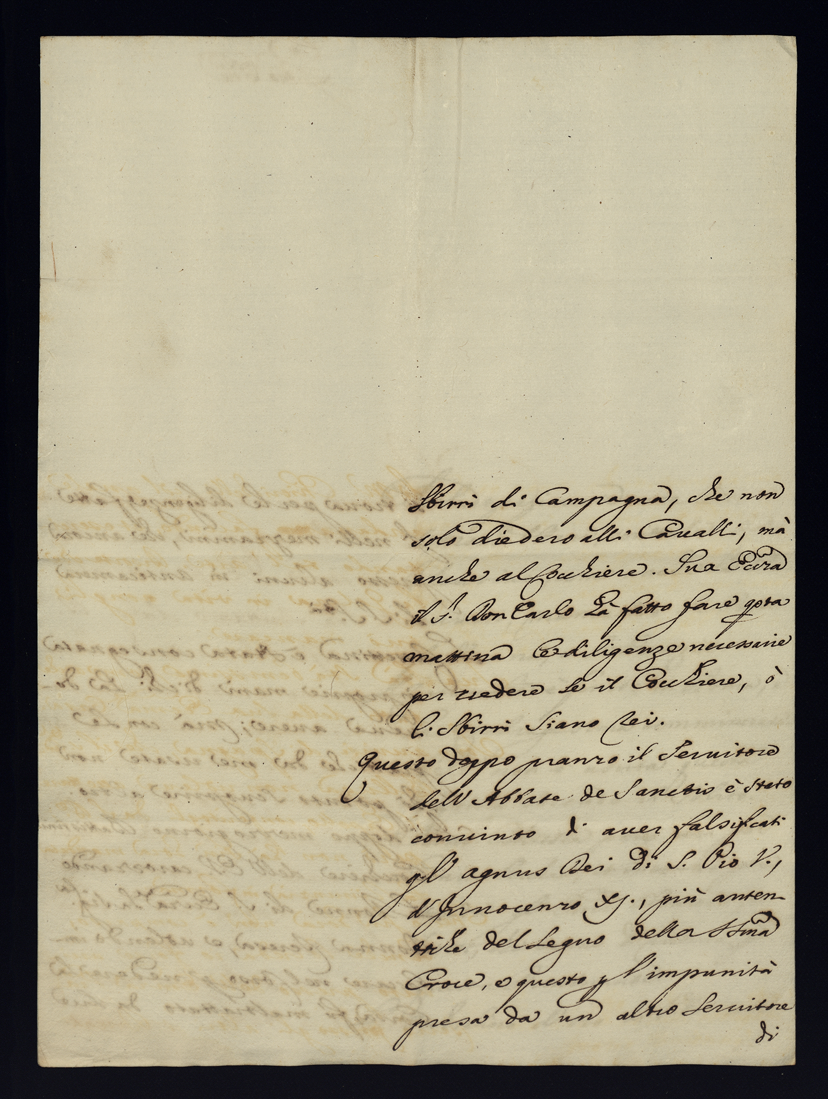 Sbirri di Campagna, che non
solo diedero alli Cavalli, mà
anche al Cocchiere. Sua Ecc.za
il S.r Don Carlo hà fatto fare q̃sta
mattina le diligenze necessarie
per vedere se il Cocchiere, ò
li Sbirri siano rei.
Questo doppo pranzo il Servitore
dell'Abbate de Sanctis è stato
convinto d'aver falsificati
gl'agnus Dei di S. Pio V.,
d'Innocenzo XJ., più auten-
tiche del Legno della SSma
Croce, e questo p l'impunità
presa da un altro Servitore
di